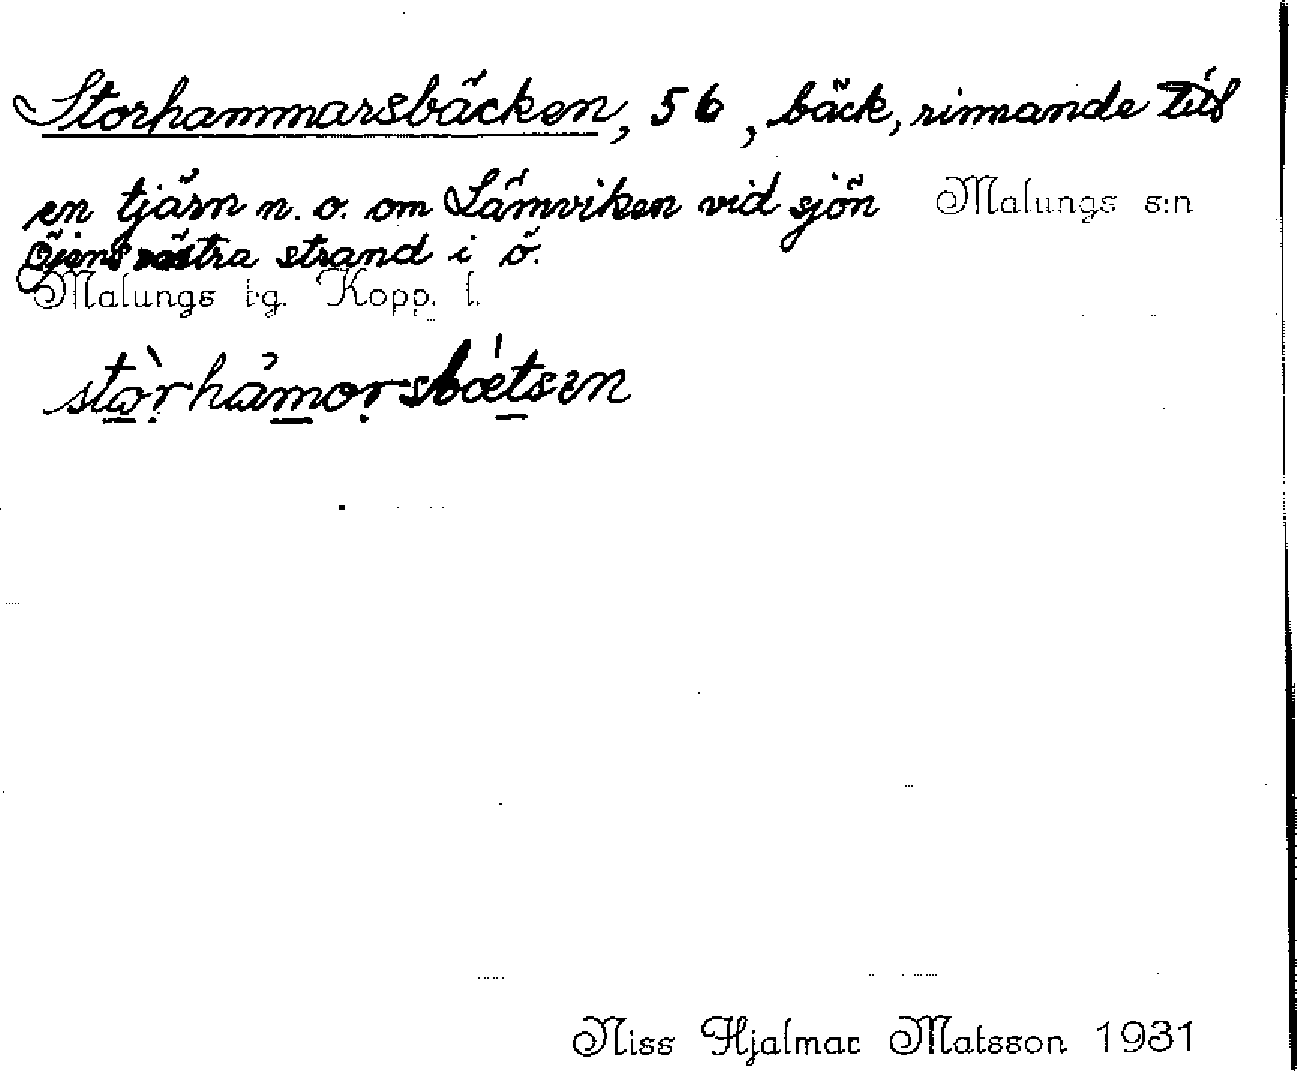 Storhammarsbäcken, 56, bäck, rinnande till
en tjärn n. o. om Lämviken vid sjön Malungs s:n
Öjens västra strand i ö.
Malungs tg. Kopp. l.
stòrhámorsbǽtsen
Niss Hjalmar Matsson 1931